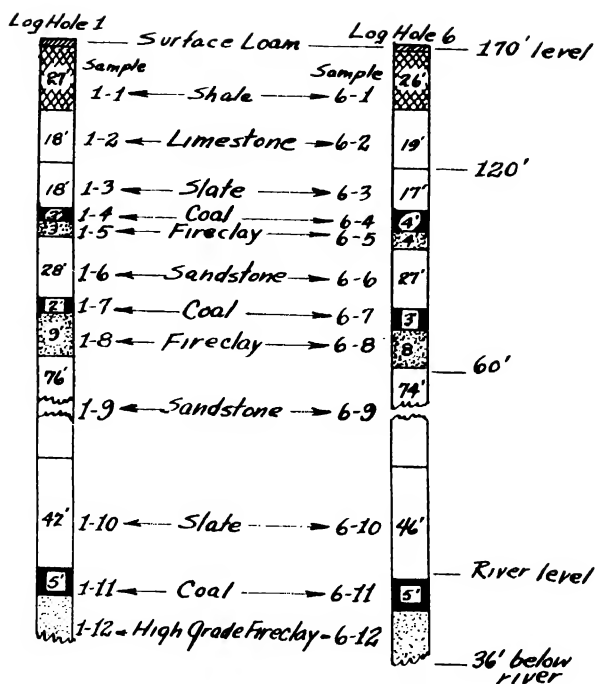 Log Hole 1
Log Hole 6
Surface Loam
170' level
Sample
Sample
27'
1-1
Shale
6-1
26'
18'
1-2
Limestone
6-2
19'
120'
18'
1-3
Slate
6-3
17'
1-4
Coal
6-4
4'
3'
1-5
Fireclay
6-5
4'
28'
1-6
Sandstone
6-6
27'
2'
1-7
Coal
6-7
3'
9'
1-8
Fireclay
6-8
8'
60'
76'
74'
1-9
Sandstone
6-9
42'
1-10
Slate
6-10
46'
River level
5'
1-11
Coal
6-11
5'
1-12
High Grade Fireclay
6-12
36' below
river